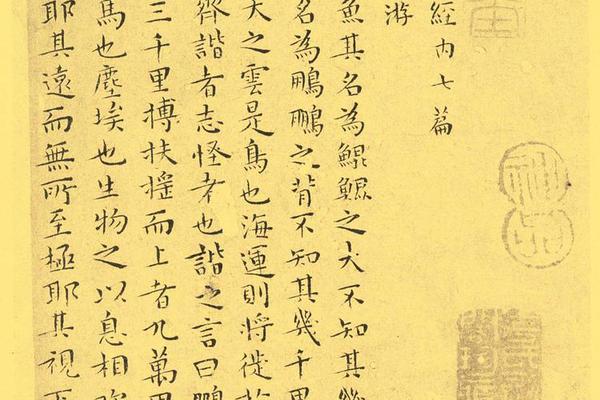 神品
經內七篇
游
魚其名為鯤鯤之大不知其幾
名為鵬鵬之背不知其幾千里
天之雲是鳥也海運則將徙於
齊諧者志怪者也諧之言曰鵬
三千里搏扶搖而上者九萬里
馬也塵埃也生物之以息相吹
耶其遠而無所至極耶其視下